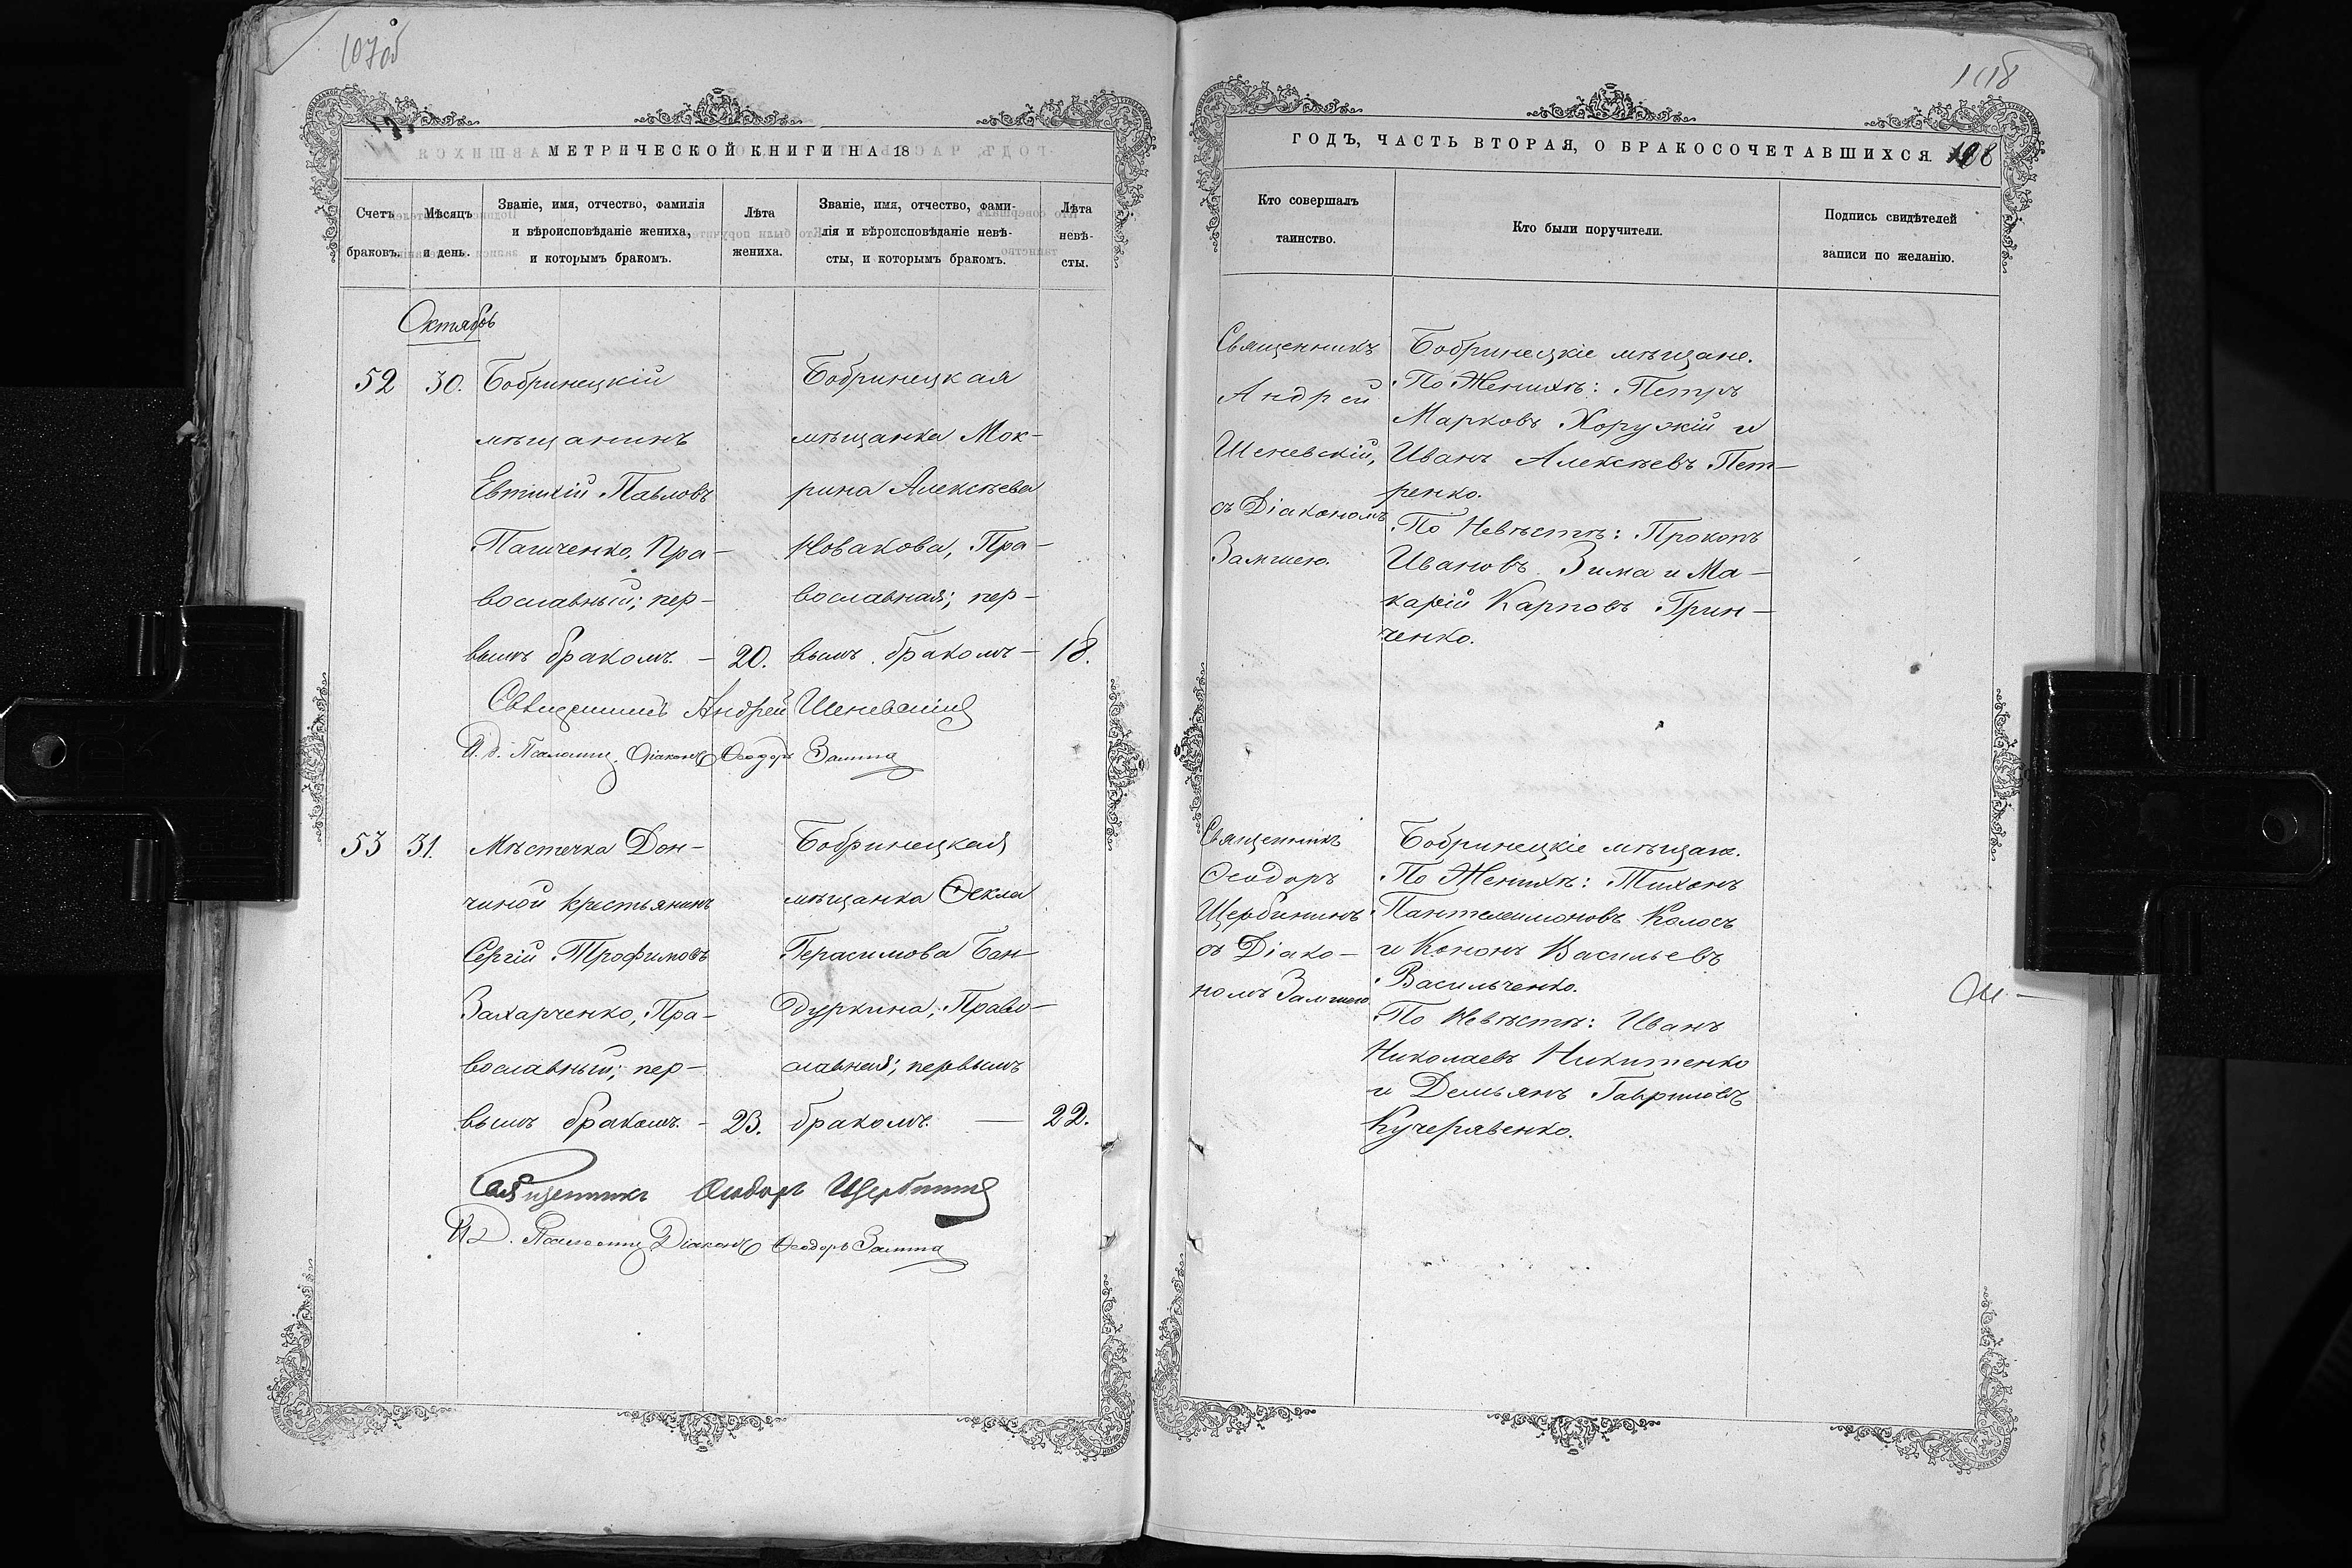 107об
МЕТРИЧЕСКОЙ КНИГИ НА 18
Счетъ браковъ.
Мѣсяцъ и день.
Званіе, имя, отчество, фамилія
и вѣроисповѣданіе жениха,
и которымъ бракомъ.
Лѣта
жениха.
Званіе, имя, отчество, фами-
лія и вѣроисповѣданіе невѣ-
сты, и которымъ бракомъ.
Лѣта
невѣ-
сты.
Октябрь
52
30.
Бобринецкій
мѣщанинъ
Евтихій Павловъ
Пагиченко, Пра-
вославный; пер-
вымъ бракомъ. —
20.
Бобринецкая
мѣщанка Мок-
рина Алексѣева
Новакова, Пра-
вославная; пер-
вымъ бракомъ —
18.
Священникъ Андрей Шеневскій
И. д. Псаломщ. Діаконъ Ѳеодоръ Замша
53
31.
Мѣстечка Дон-
чиной крестьянинъ
Сергій Трофимовъ
Захарченко, Пра-
вославный; пер-
вымъ бракомъ. —
23.
Бобринецкая
мѣщанка Ѳекла
Герасимова Бан-
дуркина, Право-
славная; первымъ
бракомъ. —
22.
Священникъ Ѳеодоръ Щербининъ
И. Д. Псаломщ. Діаконъ Ѳеодоръ Замша
108
ГОДЪ, ЧАСТЬ ВТОРАЯ, О БРАКОСОЧЕТАВШИХСЯ. 108
Кто совершалъ
таинство.
Кто были поручители.
Подпись свидѣтелей
записи по желанію.
Священникъ
Андрей
Шеневскій,
съ Діакономъ
Замшею.
Бобринецкіе мѣщане.
По Женихѣ: Петръ
Марковъ Хорузкій и
Иванъ Алексѣевъ Пет-
ренко.
По Невѣстѣ: Прокопъ
Ивановъ Зима и Ма-
карій Карповъ Грин-
ченко.
Священникъ
Ѳеодоръ
Щербининъ
съ Діако-
номъ Замшею
Бобринецкіе мѣщане.
По Женихѣ: Тихонъ
Пантелеимоновъ Колосъ
и Кононъ Васильевъ
Васильченко.
По Невѣстѣ: Иванъ
Николаевъ Никитенко
и Демьянъ Гавриловъ
Кучерявенко.